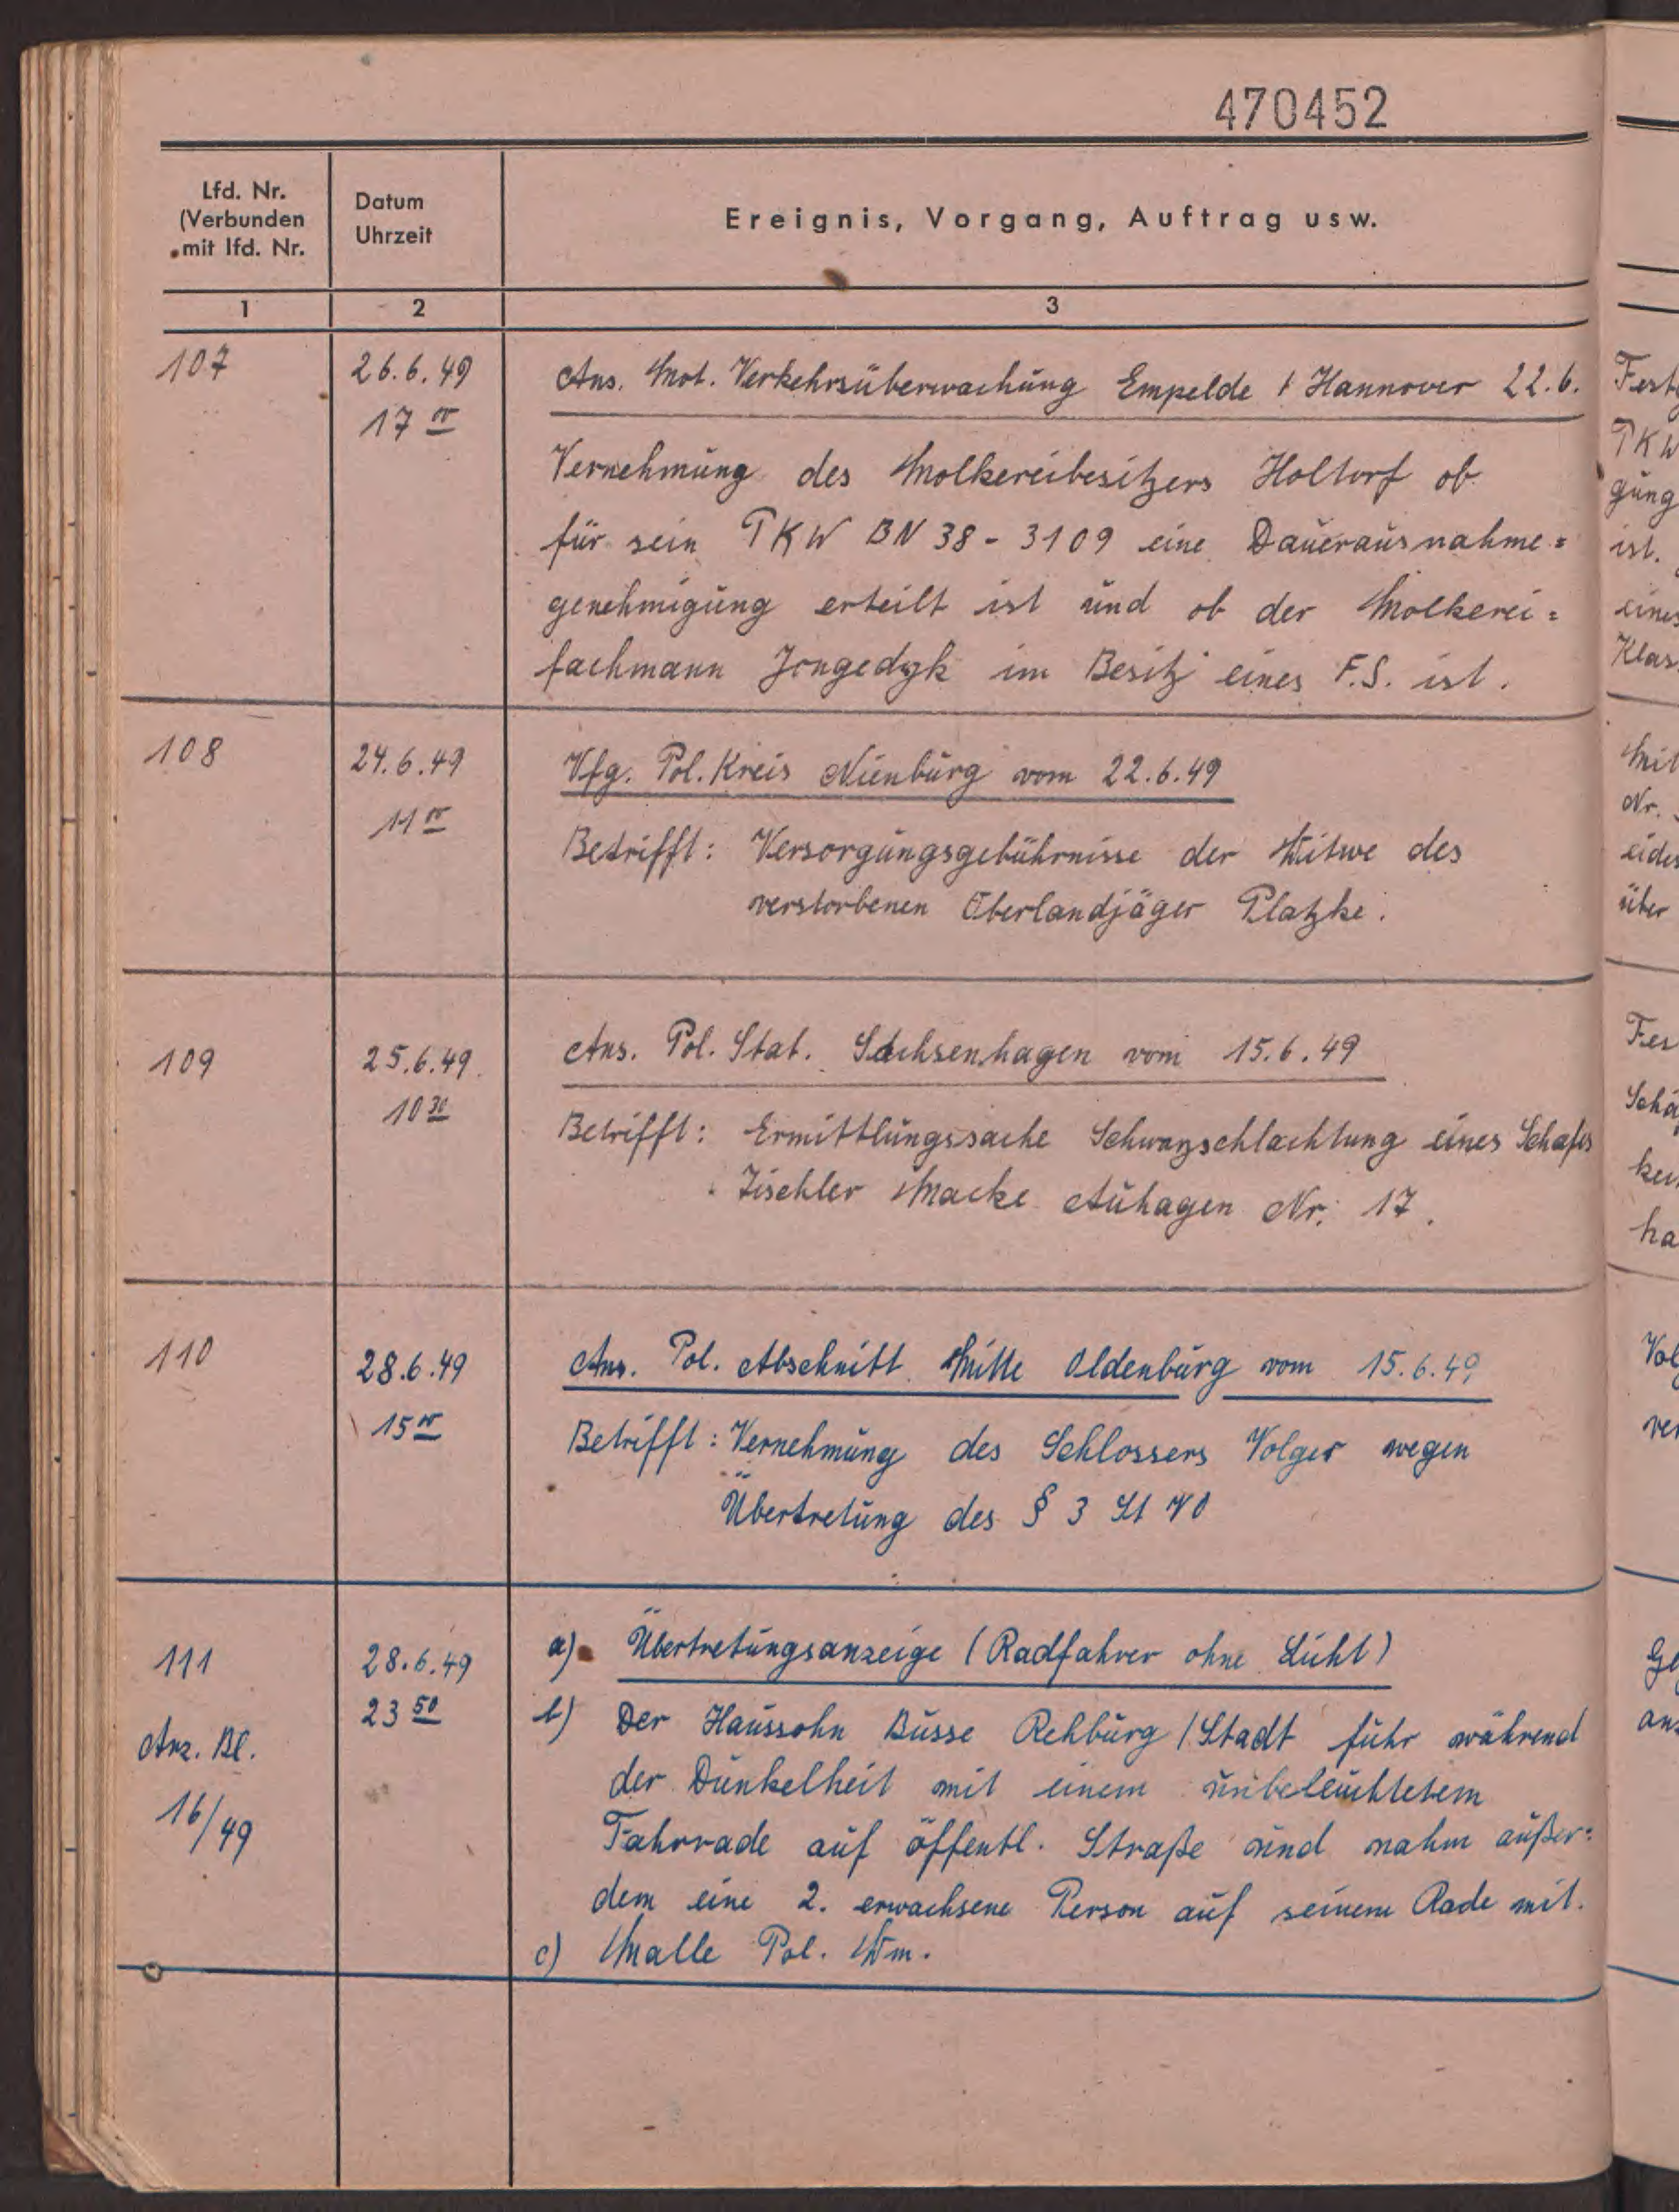 470452
Lfd. Nr.
(Verbunden
mit lfd. Nr.
Datum
Uhrzeit
Ereignis, Vorgang, Auftrag usw.
1
2
3
107
26.6.49
17 00
Ans. Mot. Verkehrsüberwachung Empelde / Hannover 22.6.
Vernehmung des Molkereibesitzers Holtorf ob
für sein PKW BN 38 - 3109 eine Dauerausnahme=
genehmigung erteilt ist und ob der Molkerei=
fachmann Jongedyk im Besitz eines F.S. ist.
108
24.6.49
11 00
Vfg. Pol. Kreis Nienburg vom 22.6.49
Betrifft: Versorgungsgebührnisse der Witwe des
verstorbenen Oberlandjäger Platzke.
109
25.6.49.
10 30
Ans. Pol. Stat. Sachsenhagen vom 15.6.49
Betrifft: Ermittlungssache Schwarzschlachtung eines Schafes
Tischler Macke Auhagen Nr. 17.
110
28.6.49
15 00
Ans. Pol. Abschnitt Mitte Oldenburg vom 15.6.49
Betrifft: Vernehmung des Schlossers Volger wegen
Übertretung des § 3 St VO
111
Anz. Bl.
16/49
28.6.49
23 50
a) Übertretungsanzeige (Radfahrer ohne Licht)
b) Der Haussohn Busse Rehburg / Stadt fuhr während
der Dunkelheit mit einem unbeleuchtetem
Fahrrade auf öffentl. Straße und nahm außer=
dem eine 2. erwachsene Person auf seinem Rade mit.
c) Malle Pol. Wm.
PKW
gung
ist.
eines
Klas
Mit
Nr.
eides
über
Fes
Schä
kei
ha
Vol
ver
Ge
anz